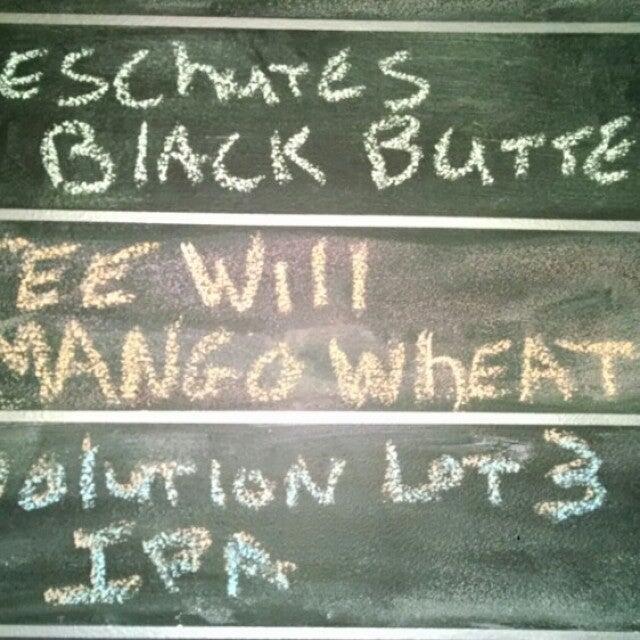 ESChuTES
BlACK BuTTE
EE Will
MANGO WhEAT
OluTION LOT 3
IPA